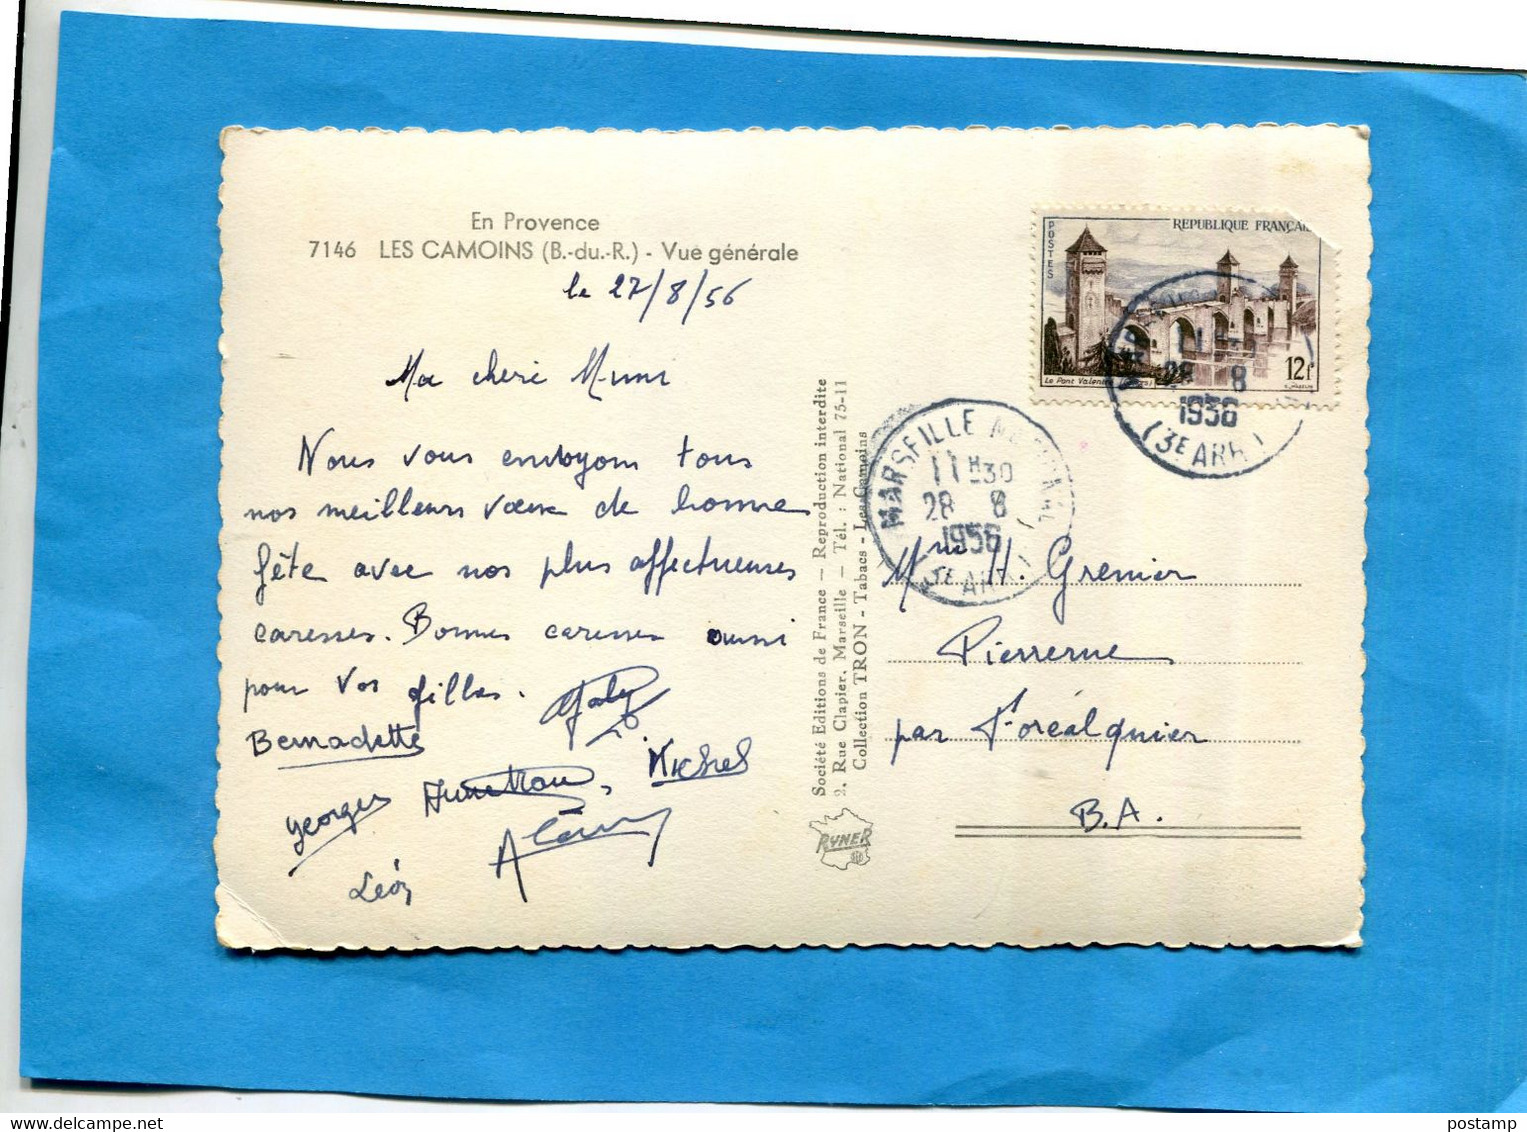 En Provence
7146 LES CAMOINS (B.-du.-R.) - Vue générale
le 27/8/56
Ma chère Mimi
Nous vous envoyons tous
nos meilleurs vœux de bonne
fête avec nos plus affectueuses
caresses. Bonnes caresses aussi
pour vos filles.
Bernadette
Georges
Michel
Léon
Société Editions de France — Reproduction interdite
2, Rue Clapier, Marseille — Tél. : National 75-11
Collection TRON - Tabacs - Les Camoins
RYNER
POSTES
REPUBLIQUE FRANÇAI
Le Pont Valentré
12f
28 8
1956
(3E ARRT)
MARSEILLE
11H30
28 8
1956
3E ARRT
Mme H. Grenier
Pierrerue
par Foréalquier
B.A.
postamp